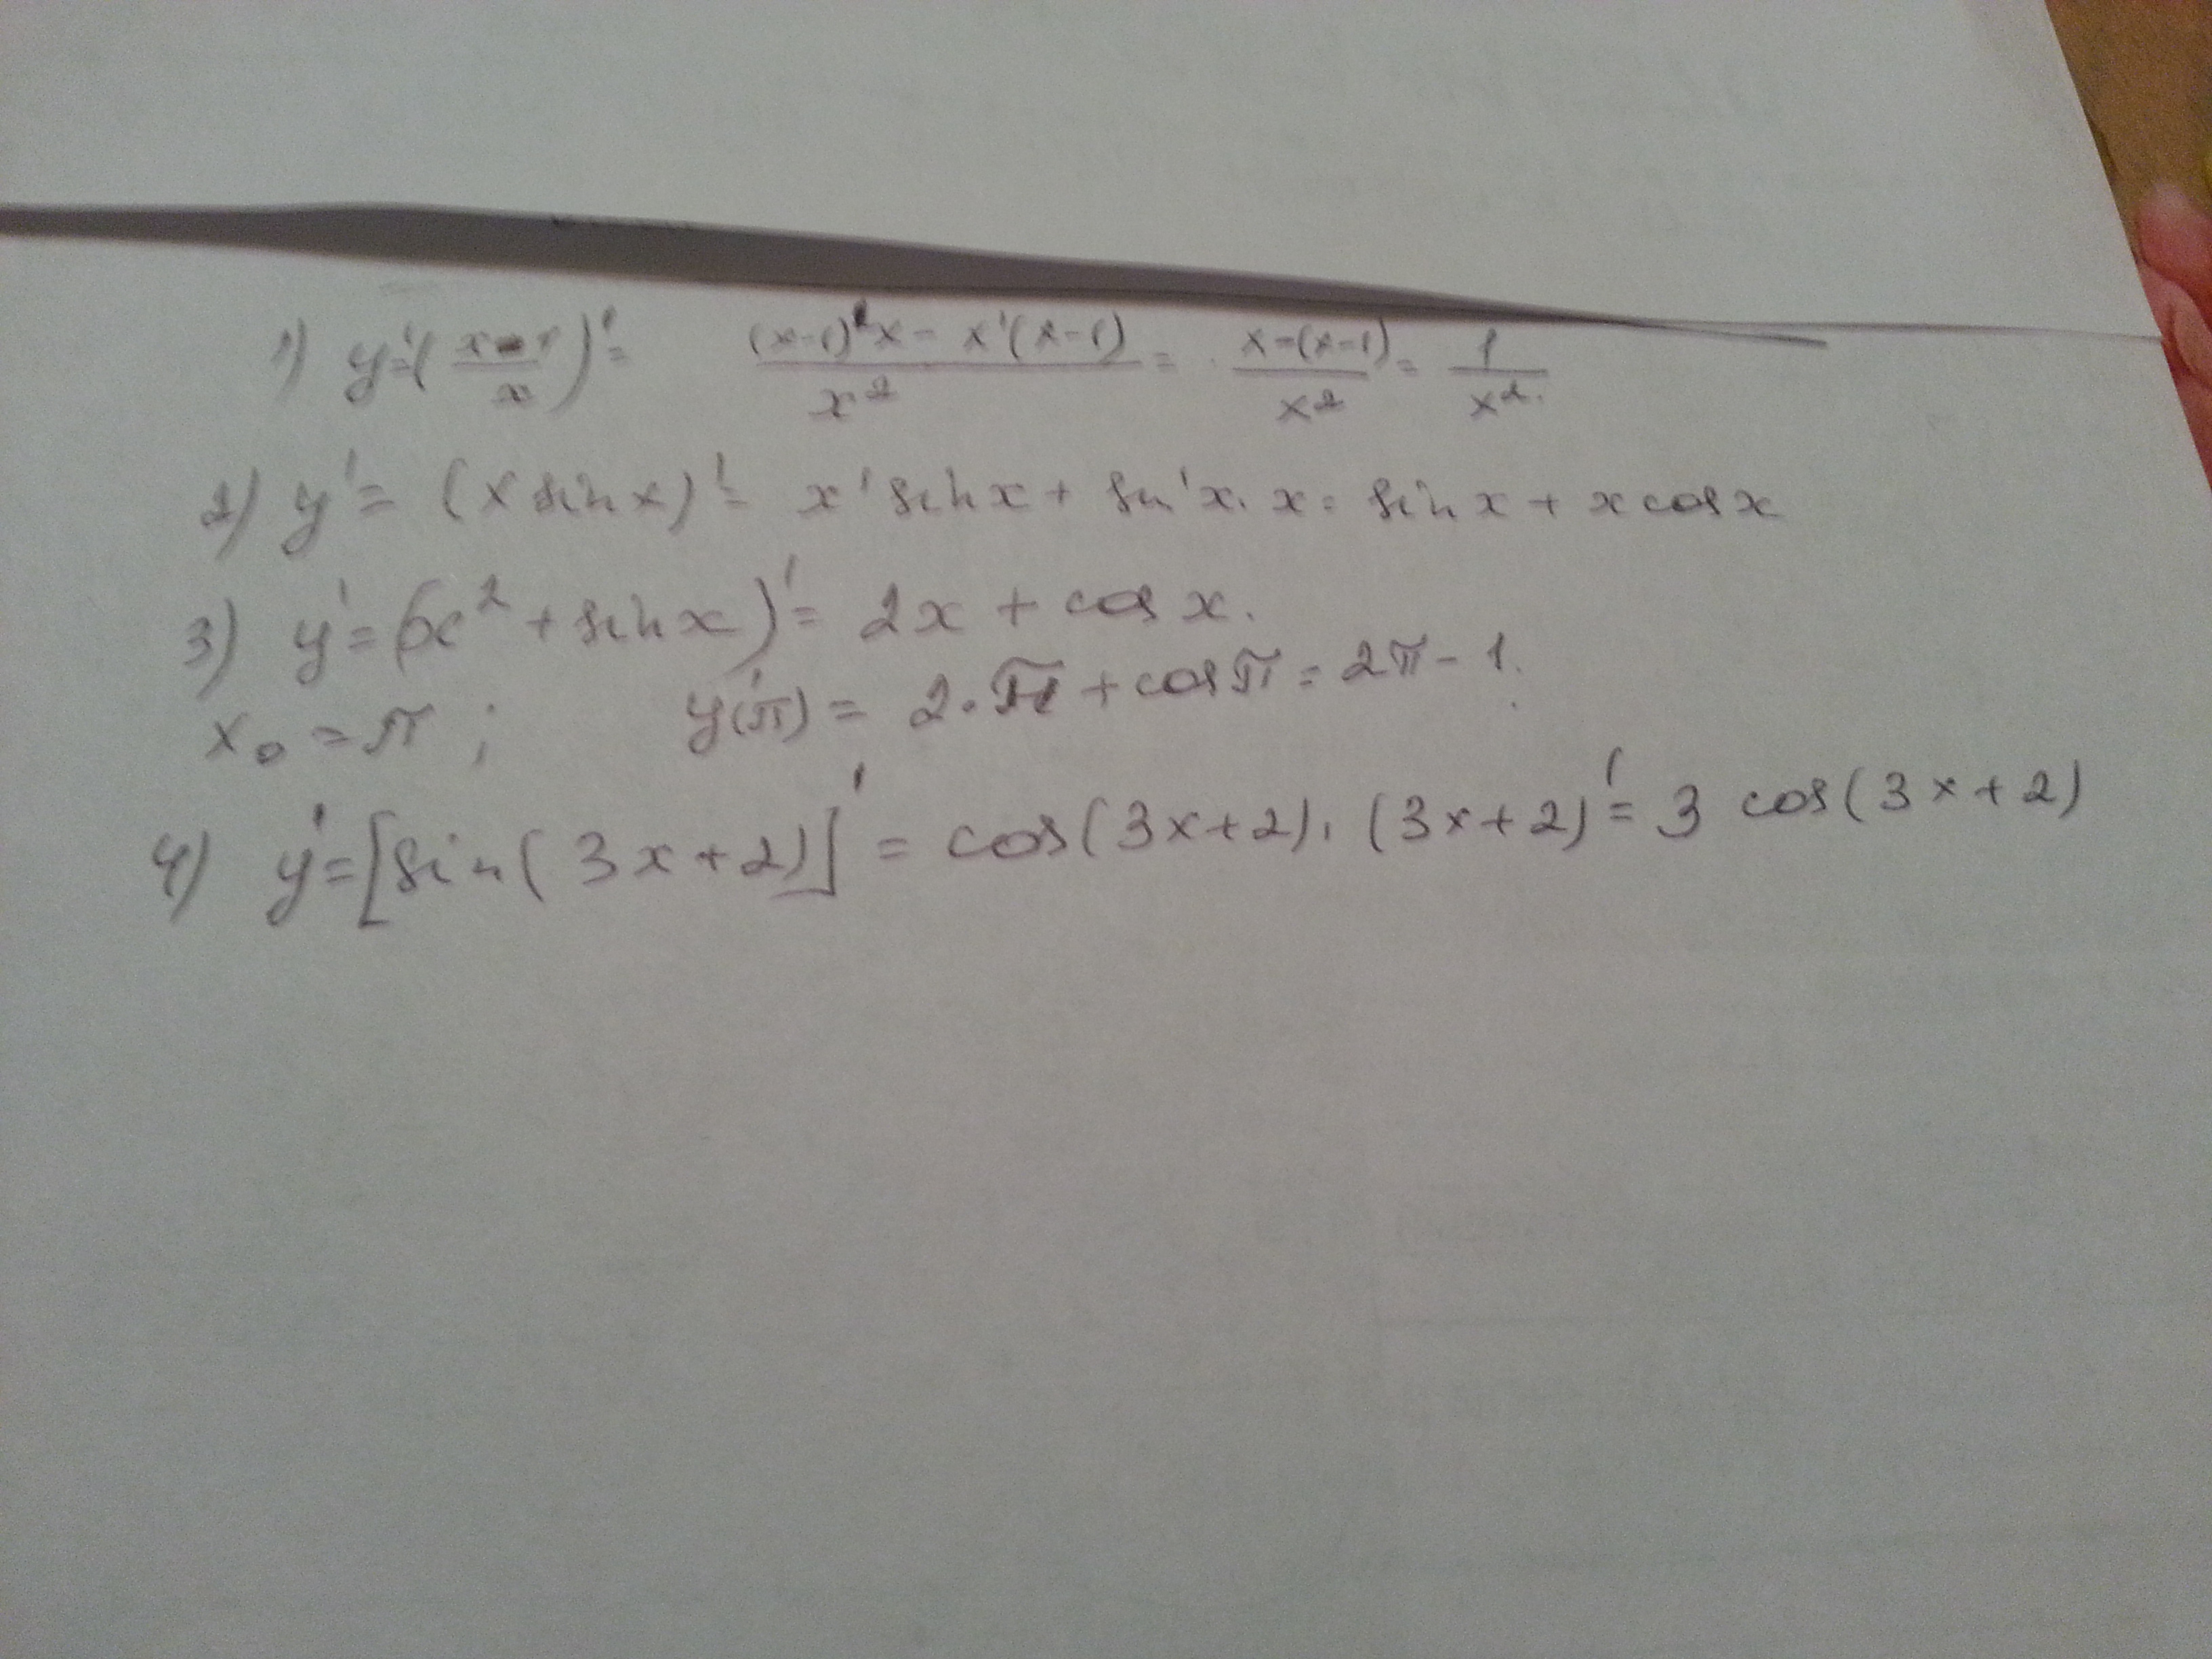 1) y'=(x-1/x)'= (x-1)'x - x'(x-1)/x² = x-(x-1)/x² = 1/x².
2) y' = (x sin x)' = x' sin x + sin'x · x = sin x + x cos x
3) y' = (x² + sin x)' = 2x + cos x.
x₀ = π ; y'(π) = 2·π + cos π = 2π - 1.
4) y' = [sin(3x+2)]' = cos(3x+2) · (3x+2)' = 3 cos(3x+2)